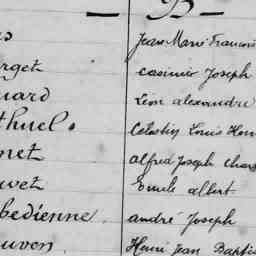 B
Jean Marie Francois
rget casimir Joseph
uard Leon alexandre
thuel. Celestin Louis Hon
net alfred Joseph Char
uvet Emile albert
bedienne. andré Joseph
uvon. Henri Jean Baptis